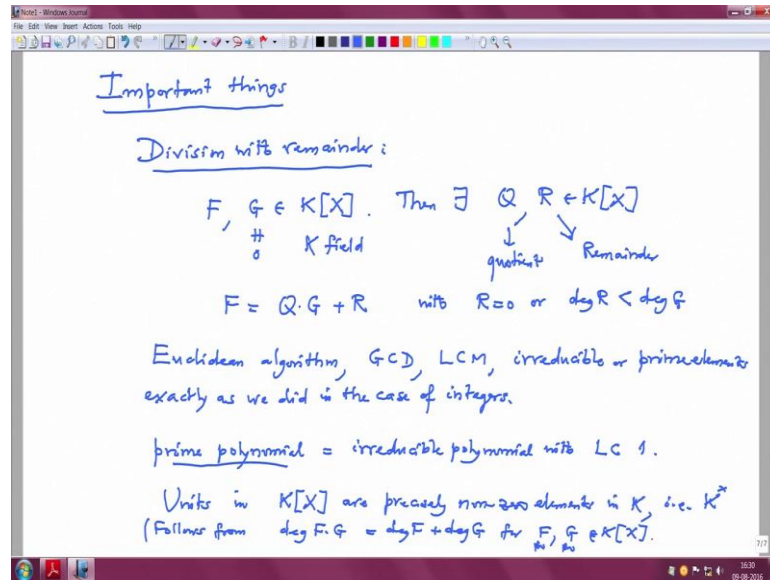 Note1 - Windows Journal
File Edit View Insert Actions Tools Help
Important things
Division with remainder :
F, G ∈ K[X]. Then ∃ Q, R ∈ K[X]
≠ 0 K field quotient Remainder
F = Q·G + R with R=0 or deg R < deg G
Euclidean algorithm, GCD, LCM, irreducible or prime elements
exactly as we did in the case of integers.
prime polynomial = irreducible polynomial with LC 1.
Units in K[X] are precisely non-zero elements in K, i.e. K^×
(Follows from deg F·G = deg F + deg G for F, G ∈ K[X].
≠0 ≠0
7/7
16:30
09-08-2016